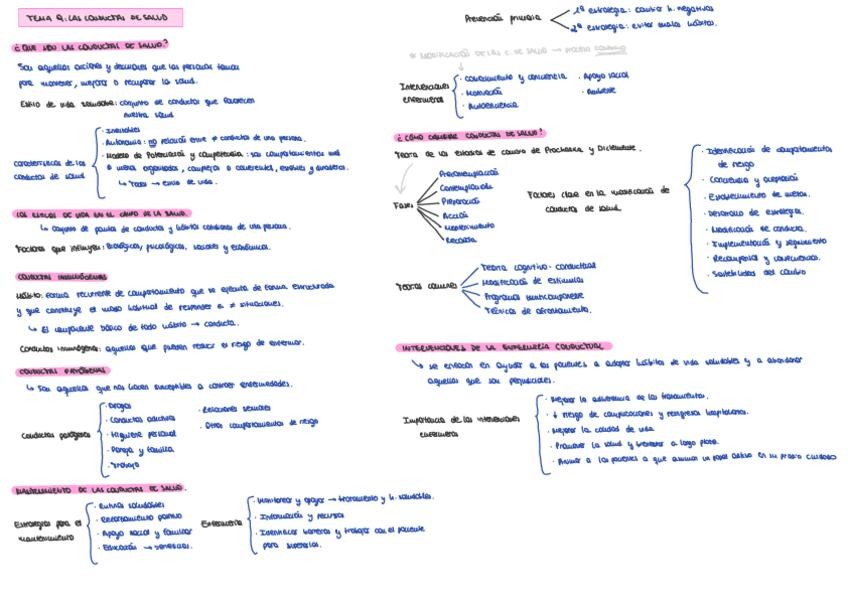 TEMA 9: LAS CONDUCTAS DE SALUD
¿QUE SON LAS CONDUCTAS DE SALUD?
Son aquellas acciones y decisiones que las personas toman
para mantener, mejorar o recuperar la salud.
Estilo de vida saludable: conjunto de conductas que favorecen
nuestra salud
Características de las
conductas de salud
· Inestables
· Autonomía: no relación entre ≠ conductas de una persona.
· Modelo de Potenciación y competencia: son comportamientos más
o menos organizados, complejos o coherentes, estables y duraderos.
↳ Todas → estilo de vida.
LOS ESTILOS DE VIDA EN EL CAMPO DE LA SALUD.
↳ conjunto de pautas de conductas y hábitos cotidianos de una persona.
Factores que influyen: biológicos, psicológicos, sociales y económicos.
CONDUCTAS INMUNÓGENAS
Hábito: forma recurrente de comportamiento que se ejecuta de forma estructurada
y que constituye el modo habitual de responder a ≠ situaciones.
↳ El componente básico de todo hábito → conducta.
Conductas inmunógenas: aquellas que pueden reducir el riesgo de enfermar.
CONDUCTAS PATÓGENAS
↳ Son aquellas que nos hacen susceptibles a contraer enfermedades.
Conductas patógenas
· Drogas
· Conductas adictivas
· Higiene personal
· Pareja y familia
· Trabajo
· Relaciones sexuales
· Otros comportamientos de riesgo
MANTENIMIENTO DE LAS CONDUCTAS DE SALUD.
Estrategias para el
mantenimiento
· Rutinas saludables
· Reforzamiento positivo
· Apoyo social y familiar
· Educación → beneficios.
Enfermería
· Monitorear y apoyar → tratamiento y h. saludables.
· Información y recursos
· Identificar barreras y trabajar con el paciente
para superarlas.
Prevención primaria
1ª estrategia: cambiar h. negativos
2ª estrategia: evitar malos hábitos.
* MODIFICACIÓN DE LAS C. DE SALUD → proceso
Intervenciones
enfermeras
· Conocimiento y conciencia
· Motivación
· Autoeficacia
· Apoyo social
· Ambiente
¿CÓMO CAMBIAR CONDUCTAS DE SALUD?
Teoría de los estadios de cambio de Prochaska y Diclemente.
Fases
Precontemplación
Contemplación
Preparación
Acción
Mantenimiento
Recaída
Factores clave en la modificación de
conductas de salud.
· Identificación de comportamientos
de riesgo
· Conciencia y aceptación
· Establecimiento de metas.
· Desarrollo de estrategias.
· Modificación de conducta.
· Implementación y seguimiento
· Recompensas y consecuencias.
· Sostenibilidad del cambio
Teorías comunes
Teoría cognitivo-conductual
Modificación de estímulos
Programas multicomponente
Técnicas de afrontamiento.
INTERVENCIONES DE LA ENFERMERÍA CONDUCTUAL
↳ se enfocan en ayudar a los pacientes a adoptar hábitos de vida saludables y a abandonar
aquellos que son perjudiciales.
Importancia de las intervenciones
enfermería
· Mejorar la adherencia de los tratamientos.
· ↓ riesgo de complicaciones y reingresos hospitalarios.
· Mejorar la calidad de vida
· Promover la salud y bienestar a largo plazo.
· Animar a los pacientes a que asuman un papel activo en su propio cuidado